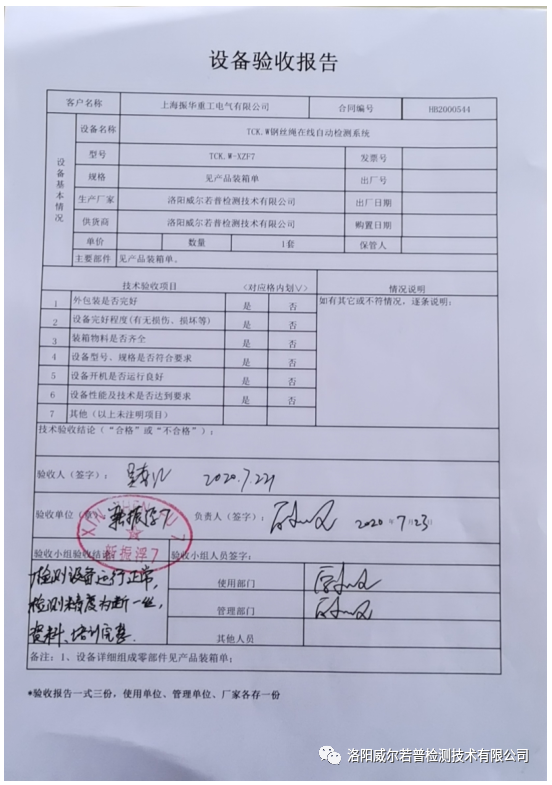 设备验收报告
客户名称 上海振华重工电气有限公司 合同编号 HB2000544
设备基本情况
设备名称 TCK.W钢丝绳在线自动检测系统
型号 TCK.W-XZF7 发票号
规格 见产品装箱单 出厂号
生产厂家 洛阳威尔若普检测技术有限公司 出厂日期
供货商 洛阳威尔若普检测技术有限公司 购置日期
单价 数量 1套 保管人
主要部件 见产品装箱单。
技术验收项目 <对应格内划∨> 情况说明
1 外包装是否完好 是 否 如有其它或不符情况，逐条说明：
2 设备完好程度(有无损伤、损坏等) 是 否
3 装箱物料是否齐全 是 否
4 设备型号、规格是否符合要求 是 否
5 设备开机是否运行良好 是 否
6 设备性能及技术是否达到要求 是 否
7 其他（以上未注明项目） 是 否
技术验收结论（“合格”或“不合格”）：
验收人（签字）： 2020.7.221
验收单位（章） 新振浮7 负责人（签字）： 2020 7 23
新振浮7
验收小组验收结论 验收小组人员签字：
检测设备运行正常， 使用部门
检测精度为断一丝， 管理部门
资料、培训完整. 其他人员
备注：1、设备详细组成零部件见产品装箱单；
*验收报告一式三份，使用单位、管理单位、厂家各存一份
洛阳威尔若普检测技术有限公司